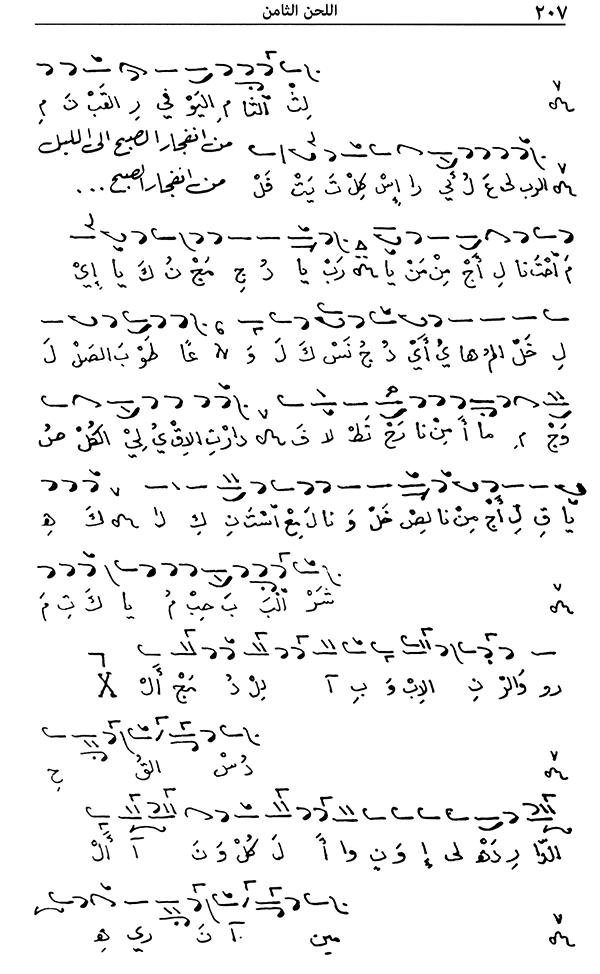 ٢٠٧ اللحن الثامن
لِثْ الثَّا مِ الْيَوْ في رِ القَبْ نَ مِ
من انفجار الصبح الى الليل
الرب لى عَ لُ ئي را إِسْ كِلْ تَ يَتْ فَلْ من انفجار الصبح ...
مَ احْتَ نا لِ أَجْ مِنْ مَنْ يَا رَبْ يا دُ جِ مَجْ نُ كَ يّا إِيْ
لِ خَلّ المُ ها يُ أَيْ دُ جُ نَسْ كَ لَ وَ عًا طَوْ بَ الصَلْ لَ
وَجْ مِ ما أَ مِنْ نا رَجْ تَطْ لا فَ دارْتِ الاِقْ يُ لِيْ الكُلْ
يّا قِ لِ أَجْ مِنْ نا لِصْ خَلْ وَ نا لَ اسْتَ نِ كِ لا كَ هِ
شَرْ الْبَ بَ حِبْ مُ يا كَ تِ مَ
دو وَالرْ نِ الاِبْ وَ بِ آ لِلْ دُ مَجْ أَلْ
دُسْ القُ حِ
الدَّا رِ دَهْ لى إِ وَ نٍ وا أَ لَ كُلْ وَ نَ آ أَلْ
مين آ نَ ري هِ